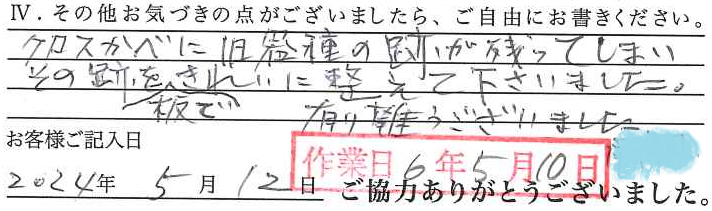 Ⅳ．その他お気づきの点がございましたら、ご自由にお書きください。
クロスかべに旧器種の跡が残ってしまい
その跡をきれいに整えて下さいました。
板で
有り難うございました
お客様ご記入日
作業日 6年5月10日
2024年 5月12日
ご協力ありがとうございました。